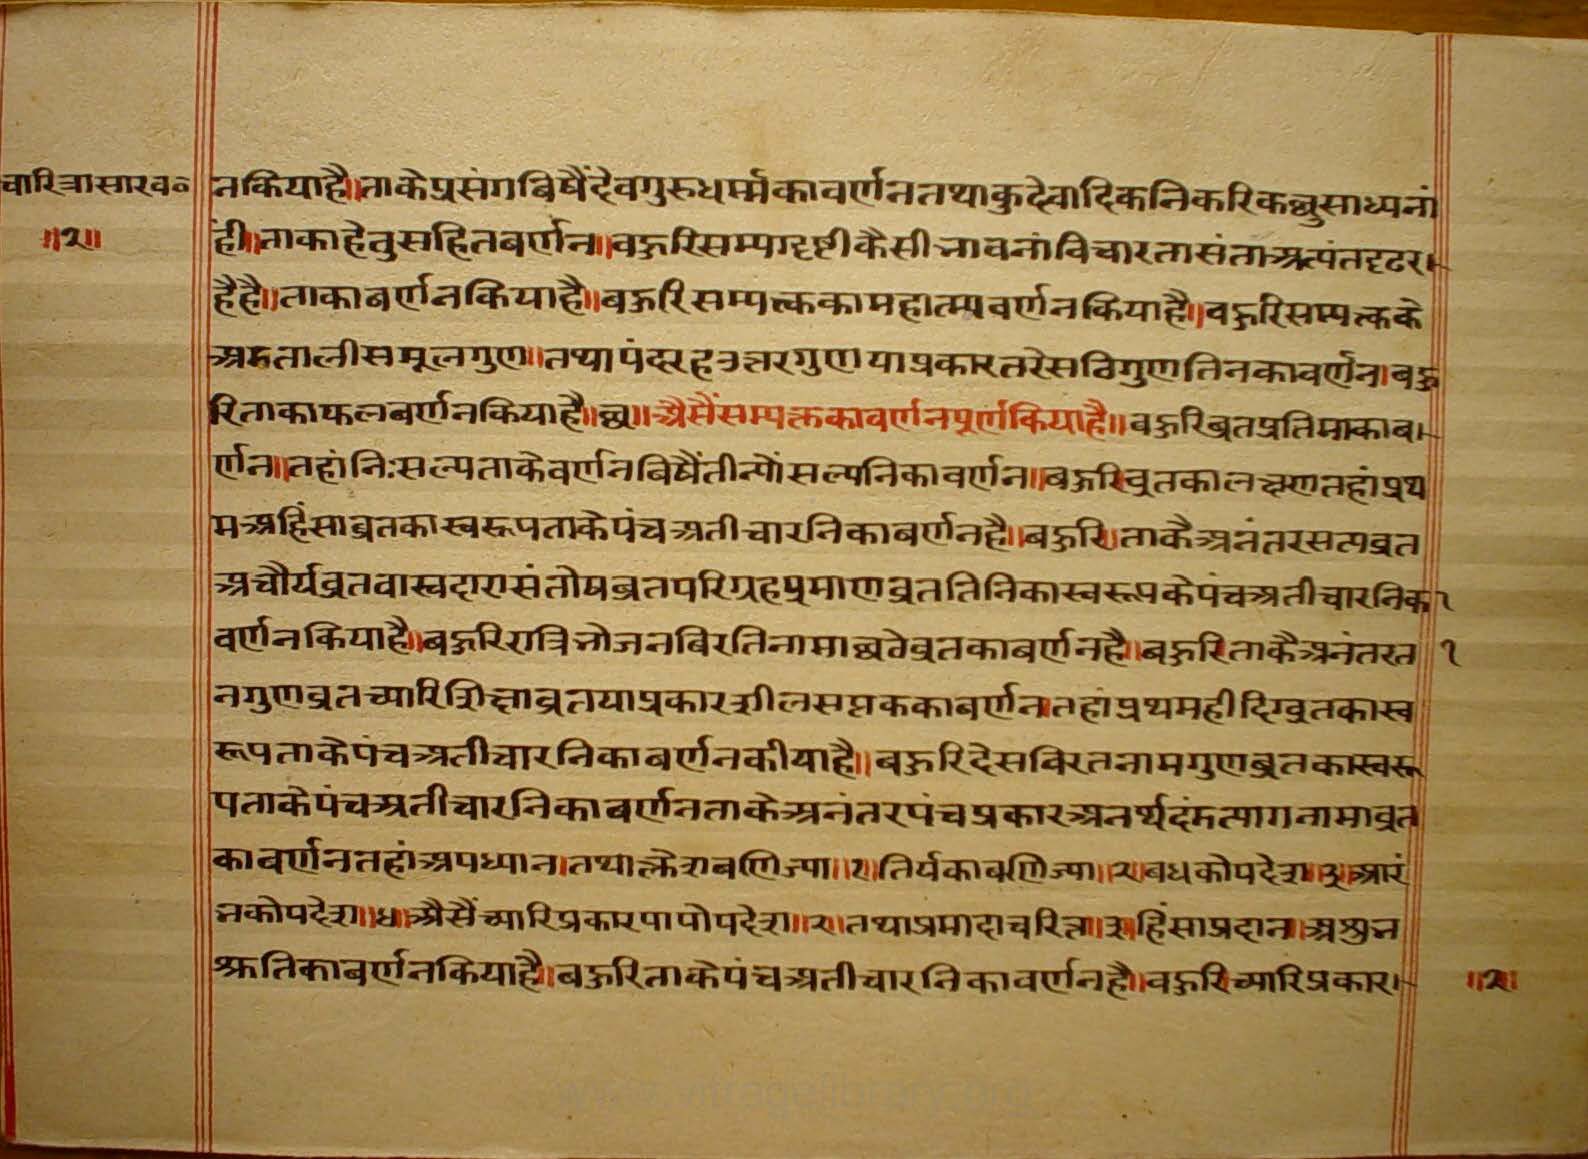 चारित्रासारव॰
॥२॥
नकियाहै॥ताकेप्रसंगबिषैंदेवगुरुधर्म्मकावर्णनतथाकुदेवादिकनिकरिकछुसाध्यनां
ही॥ताकाहेतुसहितबर्णन॥वहुरिसम्यग्दृष्टीकैसीभावनांविचारतासंताअत्यंतदृढर
हैहै॥ताकाबर्णनकियाहै॥बहुरिसम्यक्त्वकामहात्म्यवर्णनकियाहै॥वहुरिसम्यक्त्वके
अडतालीसमूलगुण॥तथापंदरहउत्तरगुणयाप्रकारतरेसठिगुणतिनकावर्णन।बहु
रिताकाफलबर्णनकियाहै॥छ॥अैसैंसम्यक्तकावर्णनपूर्णकियाहै॥बहुरिब्रतप्रतिमाकाब
र्णन॥तहांनिःसल्यताकेवर्णनबिषैंतीन्योंसल्यनिकावर्णन॥बहुरिव्रतकालक्षणतहांप्रथ
मअहिंसाब्रतकास्वरूपताकेपंचअतीचारनिकाबर्णनहै॥बहुरि।ताकैअनंतरसत्यब्रत
अचौर्यब्रतवास्वदारासंतोषब्रतपरिग्रहप्रमाणब्रततिनिकास्वरूपकेपंचअतीचारनिका
वर्णनकियाहै॥बहुरिरात्रिभोजनबिरतिनामाछठेब्रतकाबर्णनहै॥बहुरिताकैअनंतरत १
नगुणब्रतच्यारिशिक्षाब्रतयाप्रकारशीलसप्तककाबर्णन॥तहांप्रथमहीदिग्व्रतकास्व
रूपताकेपंचअतीचारनिकाबर्णनकीयाहै॥बहुरिदेसविरतनामगुणब्रतकास्वरू
पताकेपंचअतीचारनिकाबर्णनताकेअनंतरपंचप्रकारअनर्थदंडत्यागनामाब्रत
काबर्णनतहांअपध्यान।तथाक्लेशबणिज्या॥१॥तिर्यकाबणिज्या॥२॥बधकोपदेश॥३॥आरं
भकोपदेश॥४॥अैसैंच्यारिप्रकारपापोपदेश॥२॥तथाप्रमादाचरित्र॥३॥हिंसाप्रदान।अशुभ
श्रुतिकाबर्णनकियाहै॥बहुरिताकेपंचअतीचारनिकावर्णनहै॥वहुरिच्यारिप्रकार
॥२॥